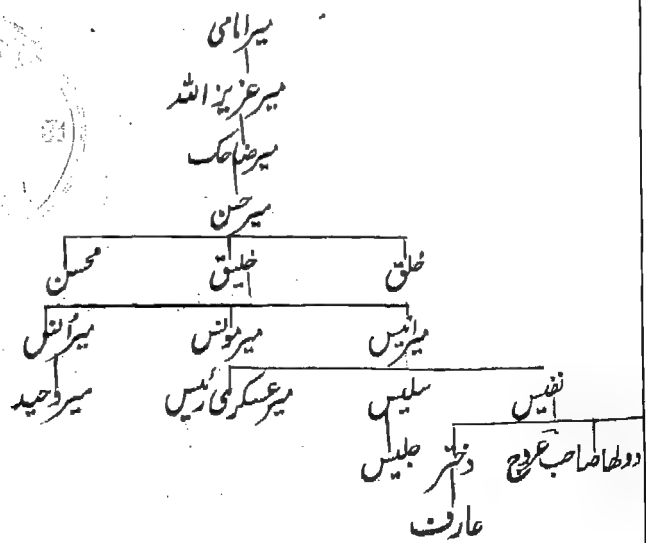 میر امامی
میر عزیز اللہ
میر ضاحک
میر حسن
خلق خلیق محسن
میر انیس میر مونس میر اُنس
نفیس سلیس میر عسکری رئیس میر وحید
دولھا صاحب عروج دختر جلیس
عارف